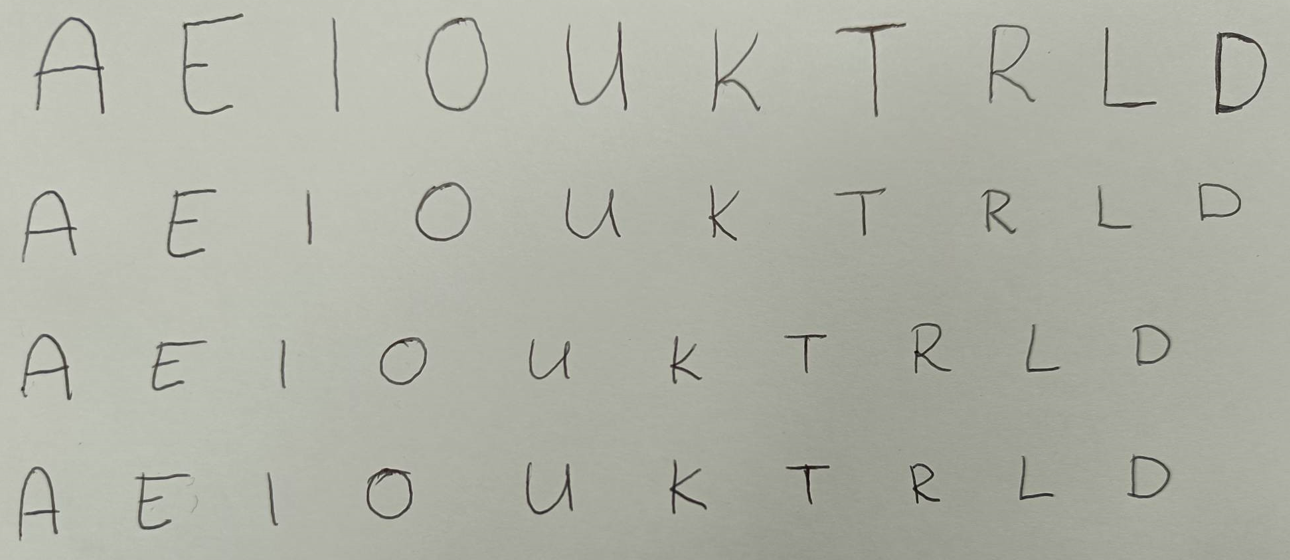 A E I O U K T R L D
A E I O U K T R L D
A E I O U K T R L D
A E I O U K T R L D